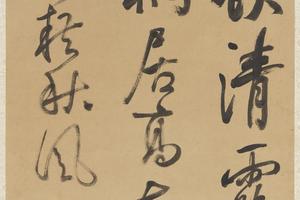 飲清露
桐居高
藉秋風